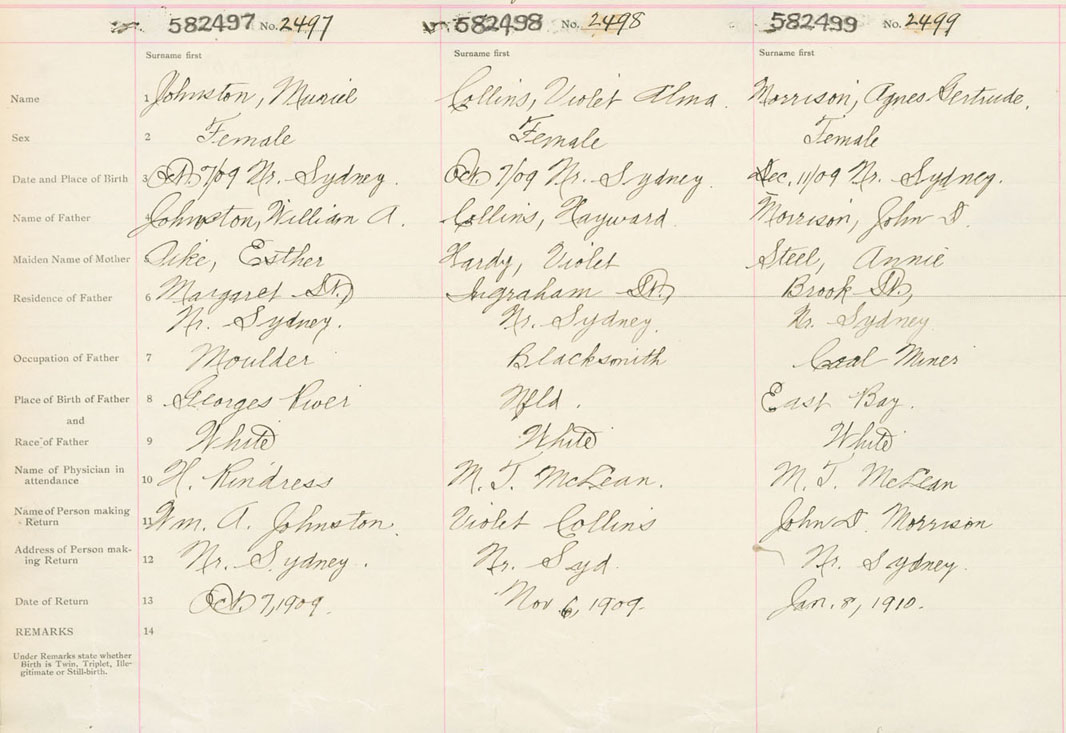 582497 No. 2497 582498 No. 2498 582499 No. 2499
Surname first Surname first Surname first
Name 1 Johnston, Muriel Collins, Violet Alma. Morrison, Agnes Gertrude.
Sex 2 Female Female Female
Date and Place of Birth 3 Oct. 7/09 Nr. Sydney. Oct 7/09 Nr. Sydney. Dec. 11/09 Nr. Sydney.
Name of Father 4 Johnston, William A. Collins, Hayward. Morrison, John D.
Maiden Name of Mother 5 Pike, Esther Hardy, Violet Steel, Annie
Residence of Father 6 Margaret St. Ingraham St. Brook St.,
Nr. Sydney. Nr. Sydney. Nr. Sydney
Occupation of Father 7 Moulder Blacksmith Coal Miner
Place of Birth of Father 8 Georges River Nfld. East Bay.
and
Race of Father 9 White White White
Name of Physician in
attendance 10 H. Rindress M. T. McLean. M. T. McLean
Name of Person making
Return 11 Wm. A. Johnston. Violet Collins John D. Morrison
Address of Person mak-
ing Return 12 Nr. Sydney. Nr. Syd. Nr. Sydney.
Date of Return 13 Oct. 7, 1909. Nov 6, 1909. Jan. 8, 1910.
REMARKS 14
Under Remarks state whether
Birth is Twin, Triplet, Ille-
gitimate or Still-birth.